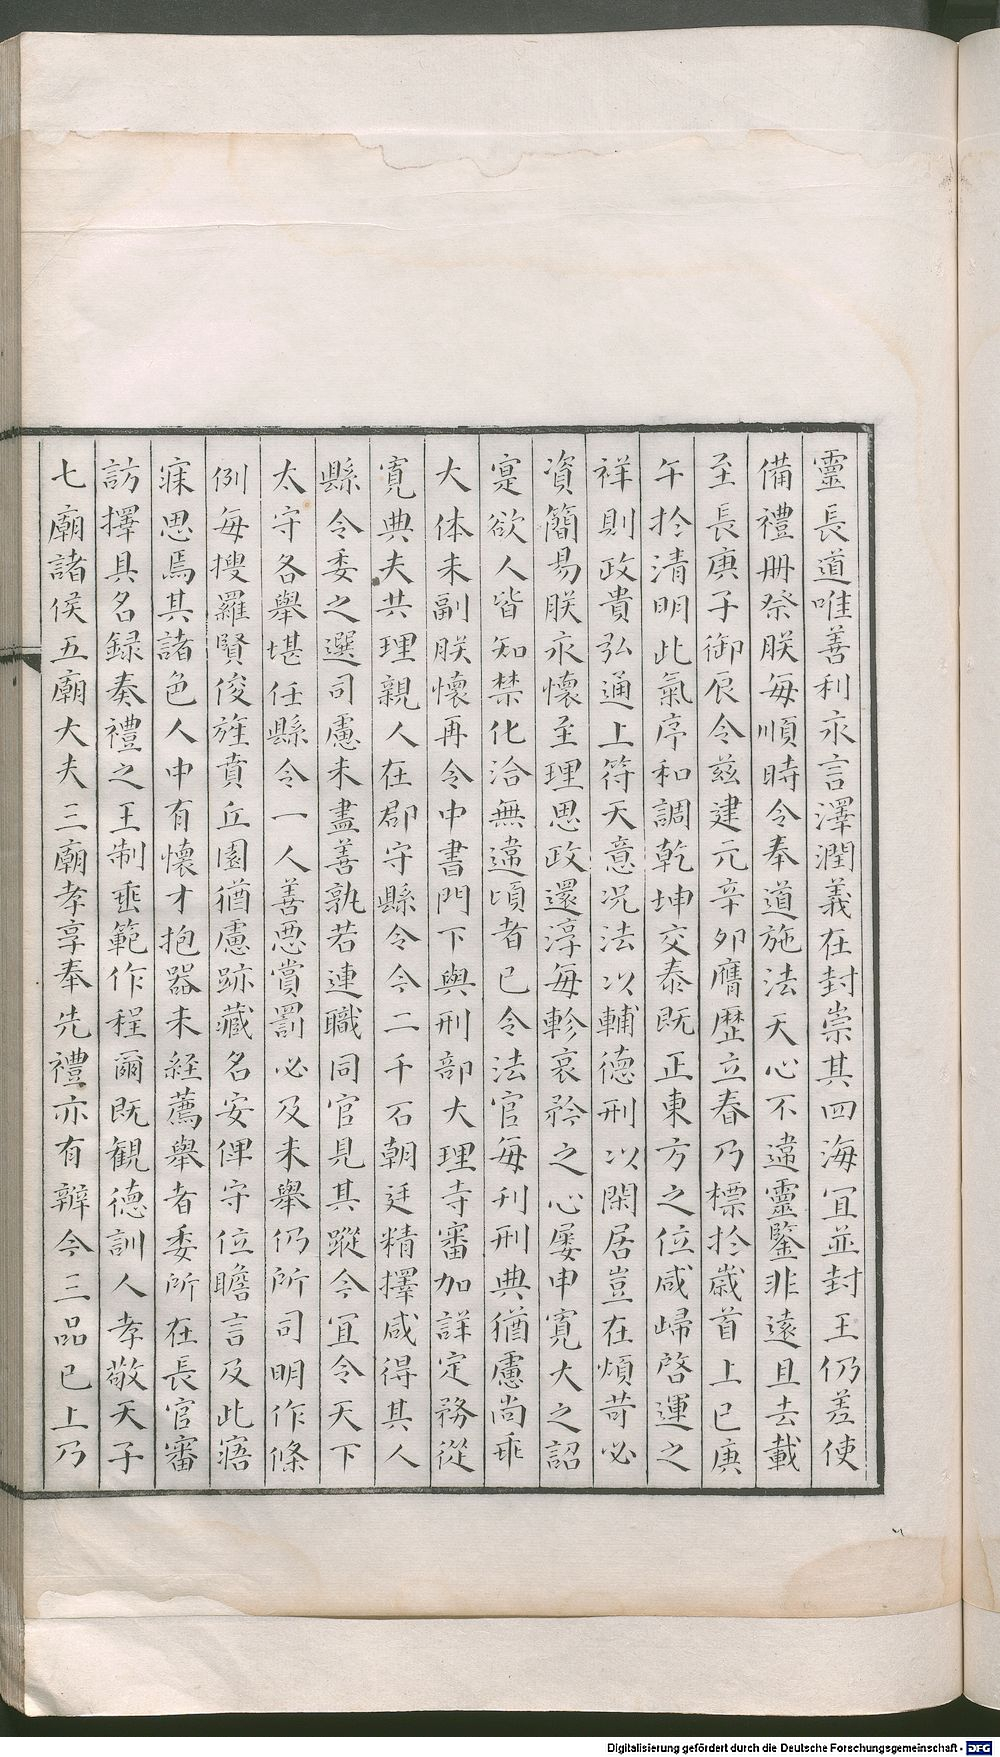 靈長道唯善利永言澤潤義在封崇其四海宜並封王仍差使
備禮冊祭朕每順時令奉道施法天心不違靈鑒非遠且去載
至長庚子御辰今茲建元辛夘膺歴立春乃標扵歲首上巳庚
午扵清明此氣序和調乾坤交泰既正東方之位咸歸啓運之
祥則政貴弘通上符天意況法以輔德刑以閑居豈在煩苛必
資簡易朕永懷至理思政還淳每軫哀矜之心屢申寬大之詔
寔欲人皆知禁化洽無違頃者已令法官每刊刑典猶慮尚乖
大体未副朕懷再令中書門下與刑部大理寺審加詳定務從
寬典夫共理親人在郡守縣令今二千石朝廷精擇咸得其人
縣令委之選司慮未盡善孰若連職同官見其蹤今宜令天下
太守各舉堪任縣令一人善惡賞罰必及未舉仍所司明作條
例每搜羅賢俊旌賁丘園猶慮跡藏名安俾守位瞻言及此寤
寐思焉其諸色人中有懷才抱器未経薦舉者委所在長官審
訪擇具名録奏禮之王制垂範作程爾既観德訓人孝敬天子
七廟諸侯五廟大夫三廟孝享奉先禮亦有辨今三品已上乃
Digitalisierung gefördert durch die Deutsche Forschungsgemeinschaft - DFG